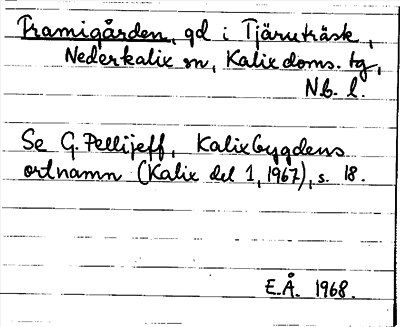 Framigården, gd i Tjäruträsk,
Nederkalix sn, Kalix doms. tg,
Nb. l.
Se G. Pellijeff, Kalixbygdens
ortnamn (Kalix del 1, 1967), s. 18.
E.Å. 1968.